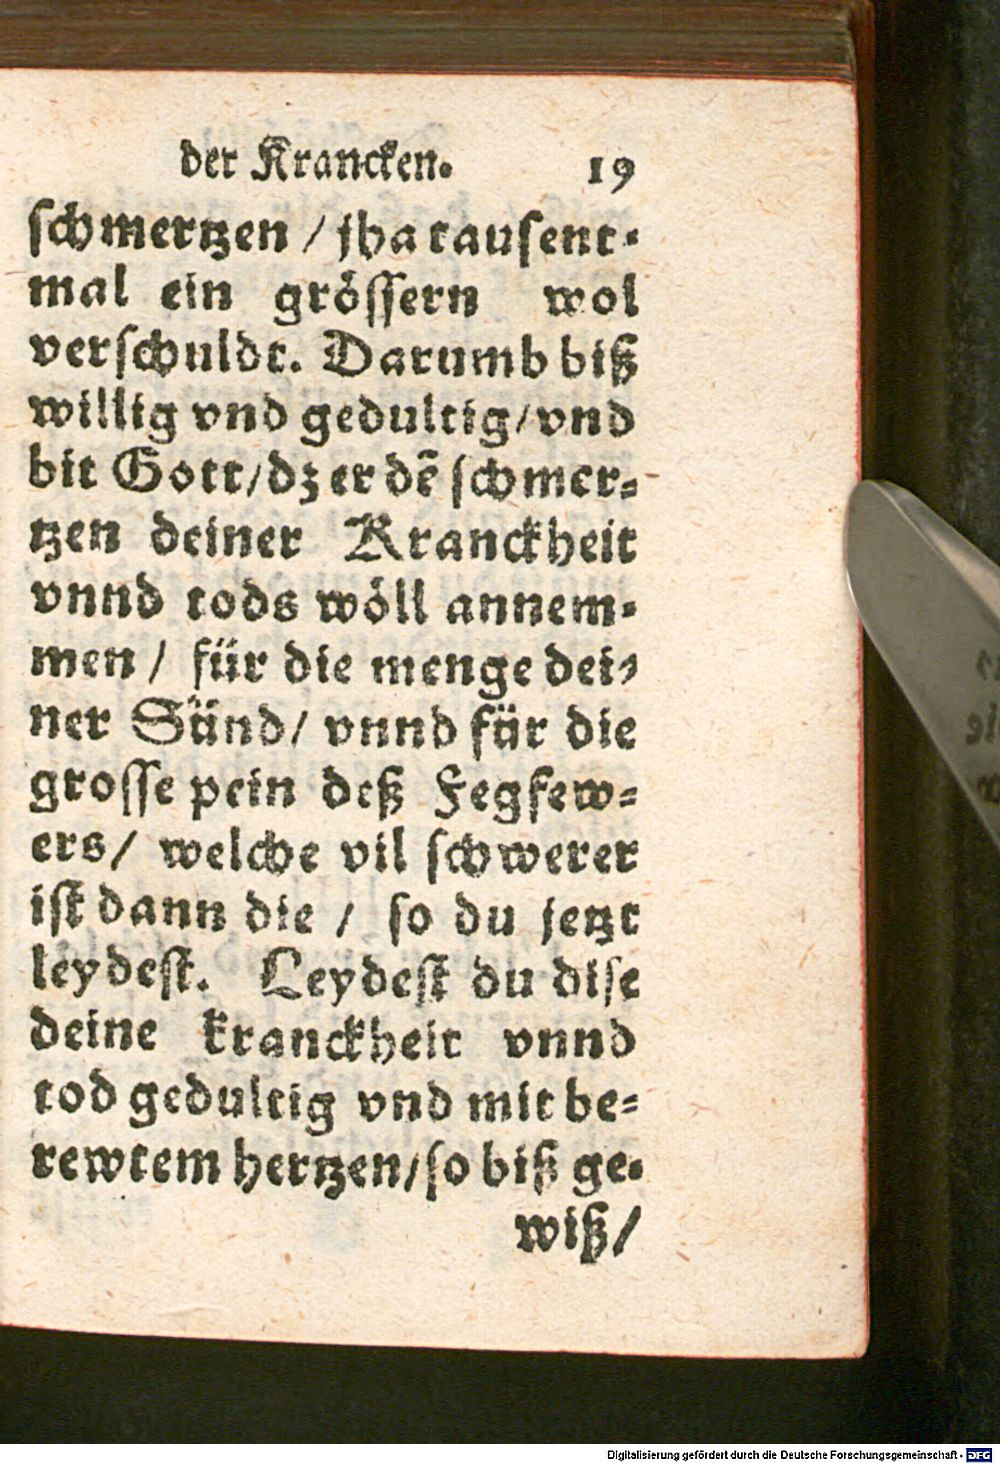 der Krancken. 19
schmertzen / jha tausent-
mal ein grössern wol
verschuldt. Darumb biß
willig vnd gedultig / vnd
bit Gott / dz er dē schmer-
tzen deiner Kranckheit
vnnd tods wöll annem-
men / für die menge dei-
ner Sünd / vnnd für die
grosse pein deß Fegfew-
ers / welche vil schwerer
ist dann die / so du jetzt
leydest. Leydest du dise
deine kranckheit vnnd
tod gedultig vnd mit be-
rewtem hertzen / so biß ge-
wiß /
Digitalisierung gefördert durch die Deutsche Forschungsgemeinschaft - DFG